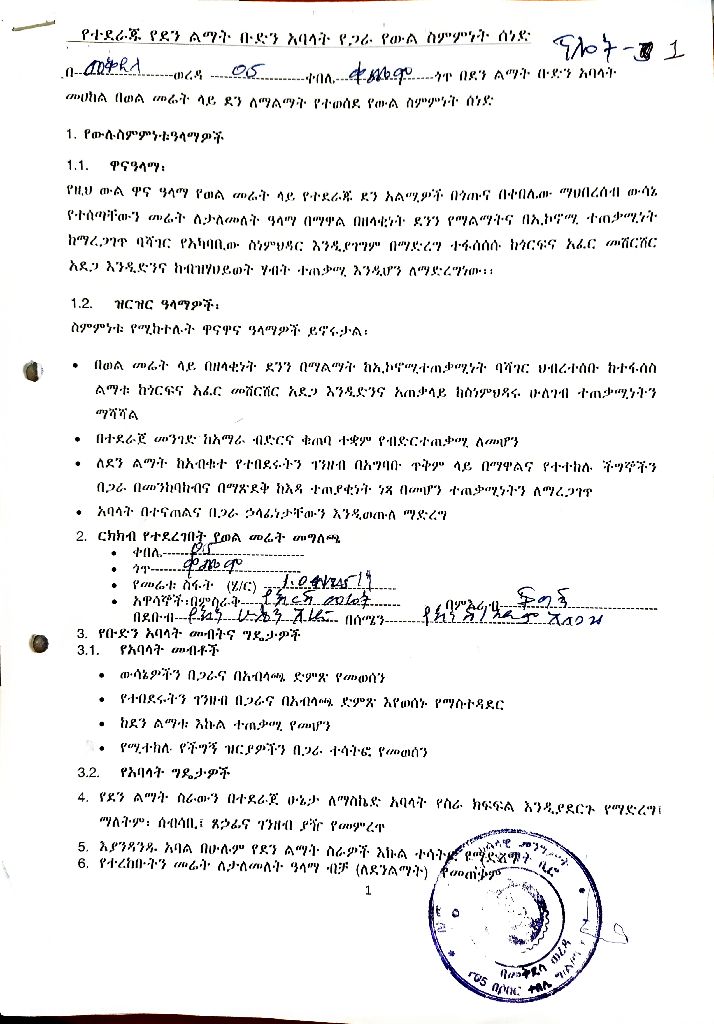 የተደራጁ የደን ልማት ቡድን አባላት የጋራ የውል ስምምነት ሰነድ
በ መቅደላ ወረዳ 05 ቀበሌ ጎጥ በደን ልማት ቡድን አባላት
መሀከል በወል መሬት ላይ ደን ለማልማት የተወሰደ የውል ስምምነት ሰነድ
1. የውሉስምምነቱዓላማዎች
1.1. ዋናዓላማ፡
የዚህ ውል ዋና ዓላማ የወል መሬት ላይ የተደራጁ ደን አልሚዎች በጎጡና በቀበሌው ማህበረሰብ ውሳኔ
የተሰጣቸውን መሬት ለታለመለት ዓላማ በማዋል በዘላቂነት ደንን የማልማትና በኢኮኖሚ ተጠቃሚነት
ከማረጋገጥ ባሻገር የአካባቢው ስነምህዳር እንዲያገግም በማድረግ ተፋሰሰሱ ከጎርፍና አፈር መሸርሸር
አደጋ እንዲድንና ከብዝሃህይወት ሃብት ተጠቃሚ እንዲሆን ለማድረግነው፡፡
1.2. ዝርዝር ዓላማዎች፡
ስምምነቱ የሚከተሉት ዋናዋና ዓላማዎች ይኖሩታል፡
• በወል መሬት ላይ በዘላቂነት ደንን በማልማት ከኢኮኖሚተጠቃሚነት ባሻገር ህብረተሰቡ ከተፋሰስ
ልማቱ ከጎርፍና አፈር መሸርሸር አደጋ እንዲድንና አጠቃላይ ከስነምህዳሩ ሁለገብ ተጠቃሚነትን
ማሻሻል
• በተደራጀ መንገድ ከአማራ ብድርና ቁጠባ ተቋም የብድርተጠቃሚ ለመሆን
• ለደን ልማት ከአብቁተ የተበደሩትን ገንዘብ በአግባቡ ጥቅም ላይ በማዋልና የተተከሉ ችግኞችን
በጋራ በመንከባከብና በማጽደቅ ከእዳ ተጠያቂነት ነጻ በመሆን ተጠቃሚነትን ለማረጋገጥ
• አባላት በተናጠልና በጋራ ኃላፊነታቸውን እንዲወጡለ ማድረግ
2. ርክክብ የተደረገበት የወል መሬት መግለጫ
• ቀበሌ 05
• ጎጥ
• የመሬቱ ስፋት (ሄ/ር)
• አዋሳኞች፡በምስራቅ መሬት በምእራብ
በደቡብ በሰሜን
3. የቡድን አባላት መብትና ግዴታዎች
3.1. የአባላት መብቶች
• ውሳኔዎችን በጋራና በአብላጫ ድምጽ የመወሰን
• የተበደሩትን ገንዘብ በጋራና በአብላጫ ድምጽ እየወሰኑ የማስተዳደር
• ከደን ልማቱ እኩል ተጠቃሚ የመሆን
• የሚተከሉ የችግኝ ዝርያዎችን በጋራ ተሳትፎ የመወሰን
3.2. የአባላት ግዴታዎች
4. የደን ልማት ስራውን በተደራጀ ሁኔታ ለማስኬድ አባላት የስራ ክፍፍል እንዲያደርጉ የማድረግ፤
ማለትም፡ ሰብሳቢ፤ ጸኃፊና ገንዘብ ያዥ የመምረጥ
5. እያንዳንዱ አባል በሁሉም የደን ልማት ስራዎች እኩል ተሳትፎ የማድረግ
6. የተረከቡትን መሬት ለታለመለት ዓላማ ብቻ (ለደንልማት) የመጠቀም
1
በመቅደላ ወረዳ